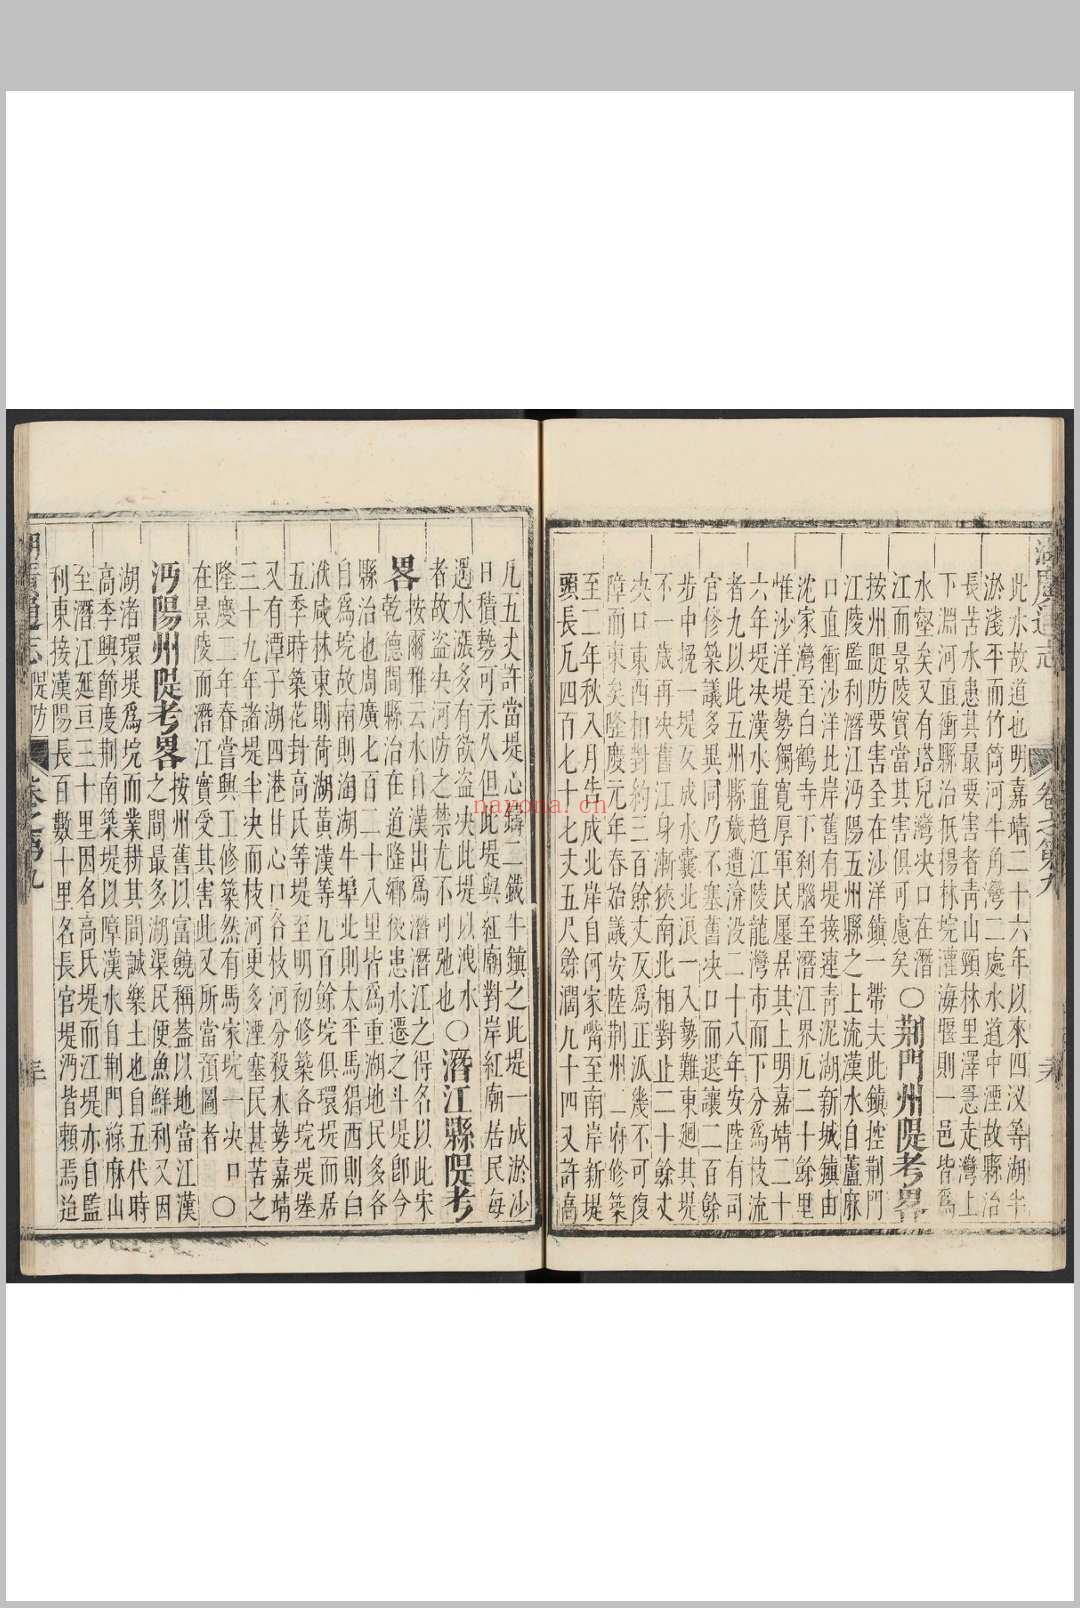 此水故道也明嘉靖二十六年以來四汊等湖半
淤淺平而竹筒河牛角灣二處水道中湮故縣治
長苦水患其最要害者青山頸林里澤急走灣上
下淵河直衝縣治抵楊林垸灌海堰則一邑皆爲
水壑矣又有塔兒灣決口在潛
江而景陵實當其害俱可慮矣〇荆門州隄考畧
按州隄防要害全在沙洋鎮一帶夫此鎮控荆門
江陵監利潛江沔陽五州縣之上流漢水自蘆麻
口直衝沙洋此岸舊有堤接連青泥湖新城鎮由
沈家灣至白鶴寺下刹腦至潛江界九二十餘里
惟沙洋堤勢獨寬厚軍民屢居其上明嘉靖二十
六年堤決漢水直趨江陵龍灣市而下分爲枝流
者九以此五州縣歲遭渰没二十八年安陸有司
官修築議多異同乃不塞舊決口而退讓二百餘
步中挽一堤反成水囊北浪一入勢難東廻其堤
不一歲再決舊江身漸狹南北相對止二十餘丈
決口東西相對約三百餘丈反爲正派幾不可復
障而東矣隆慶元年春始議安陸荆州二府修築
至二年秋入月告成北岸自何家嘴至南岸新堤
頭長凡四百七十七丈五尺餘濶九十四又許高
凡五丈許當堤心鑄二鐵牛鎮之此堤一成淤沙
日積勢可永久但此堤與紅廟對岸紅廟居民每
遇水漲多有欲盜決此堤以洩水
者故盜決河防之禁尤不可弛也〇潛江縣隄考
畧
按爾雅云水自漢出爲潛潛江之得名以此宋
乾德間縣治在道隆鄉後患水遷之斗堤卽今
縣治也周廣七百二十八里皆爲重湖地民多各
自爲垸故南則淘湖牛埠北則太平馬猖西則白
洑咸林東則荷湖黃漢等九百餘垸俱環堤而居
五季時築花封高氏等堤至明初修築各垸堤塍
又有潭子湖四港甘心口各枝河分殺水勢嘉靖
三十九年諸堤半決而枝河更多湮塞民甚苦之
隆慶二年春嘗興工修築然有馬家垸一決口
在景陵而潛江實受其害此又所當預圖者〇
沔陽州隄考畧
按州舊以富饒稱蓋以地當江漢
之間最多湖渠民便魚鮮利又因
湖渚環堤爲垸而業耕其間誠樂土也自五代時
高季興節度荆南築堤以障漢水自荆門祿麻山
至潛江延亘三十里因名高氏堤而江堤亦自監
利東接漢陽長百數十里名長官堤沔皆賴焉迨